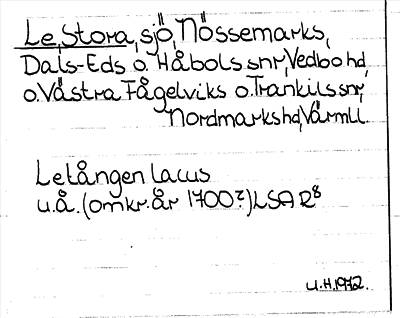 Le, Stora, sjö, Nössemarks,
Dals-Eds o. Håbols snr, Vedbo hd,
o. Västra Fågelviks o. Trankils snr,
Nordmarks hd, Värml.
Letången lacus
u.å. (omkr. år 1700?) LSA R8
U.H. 1972.